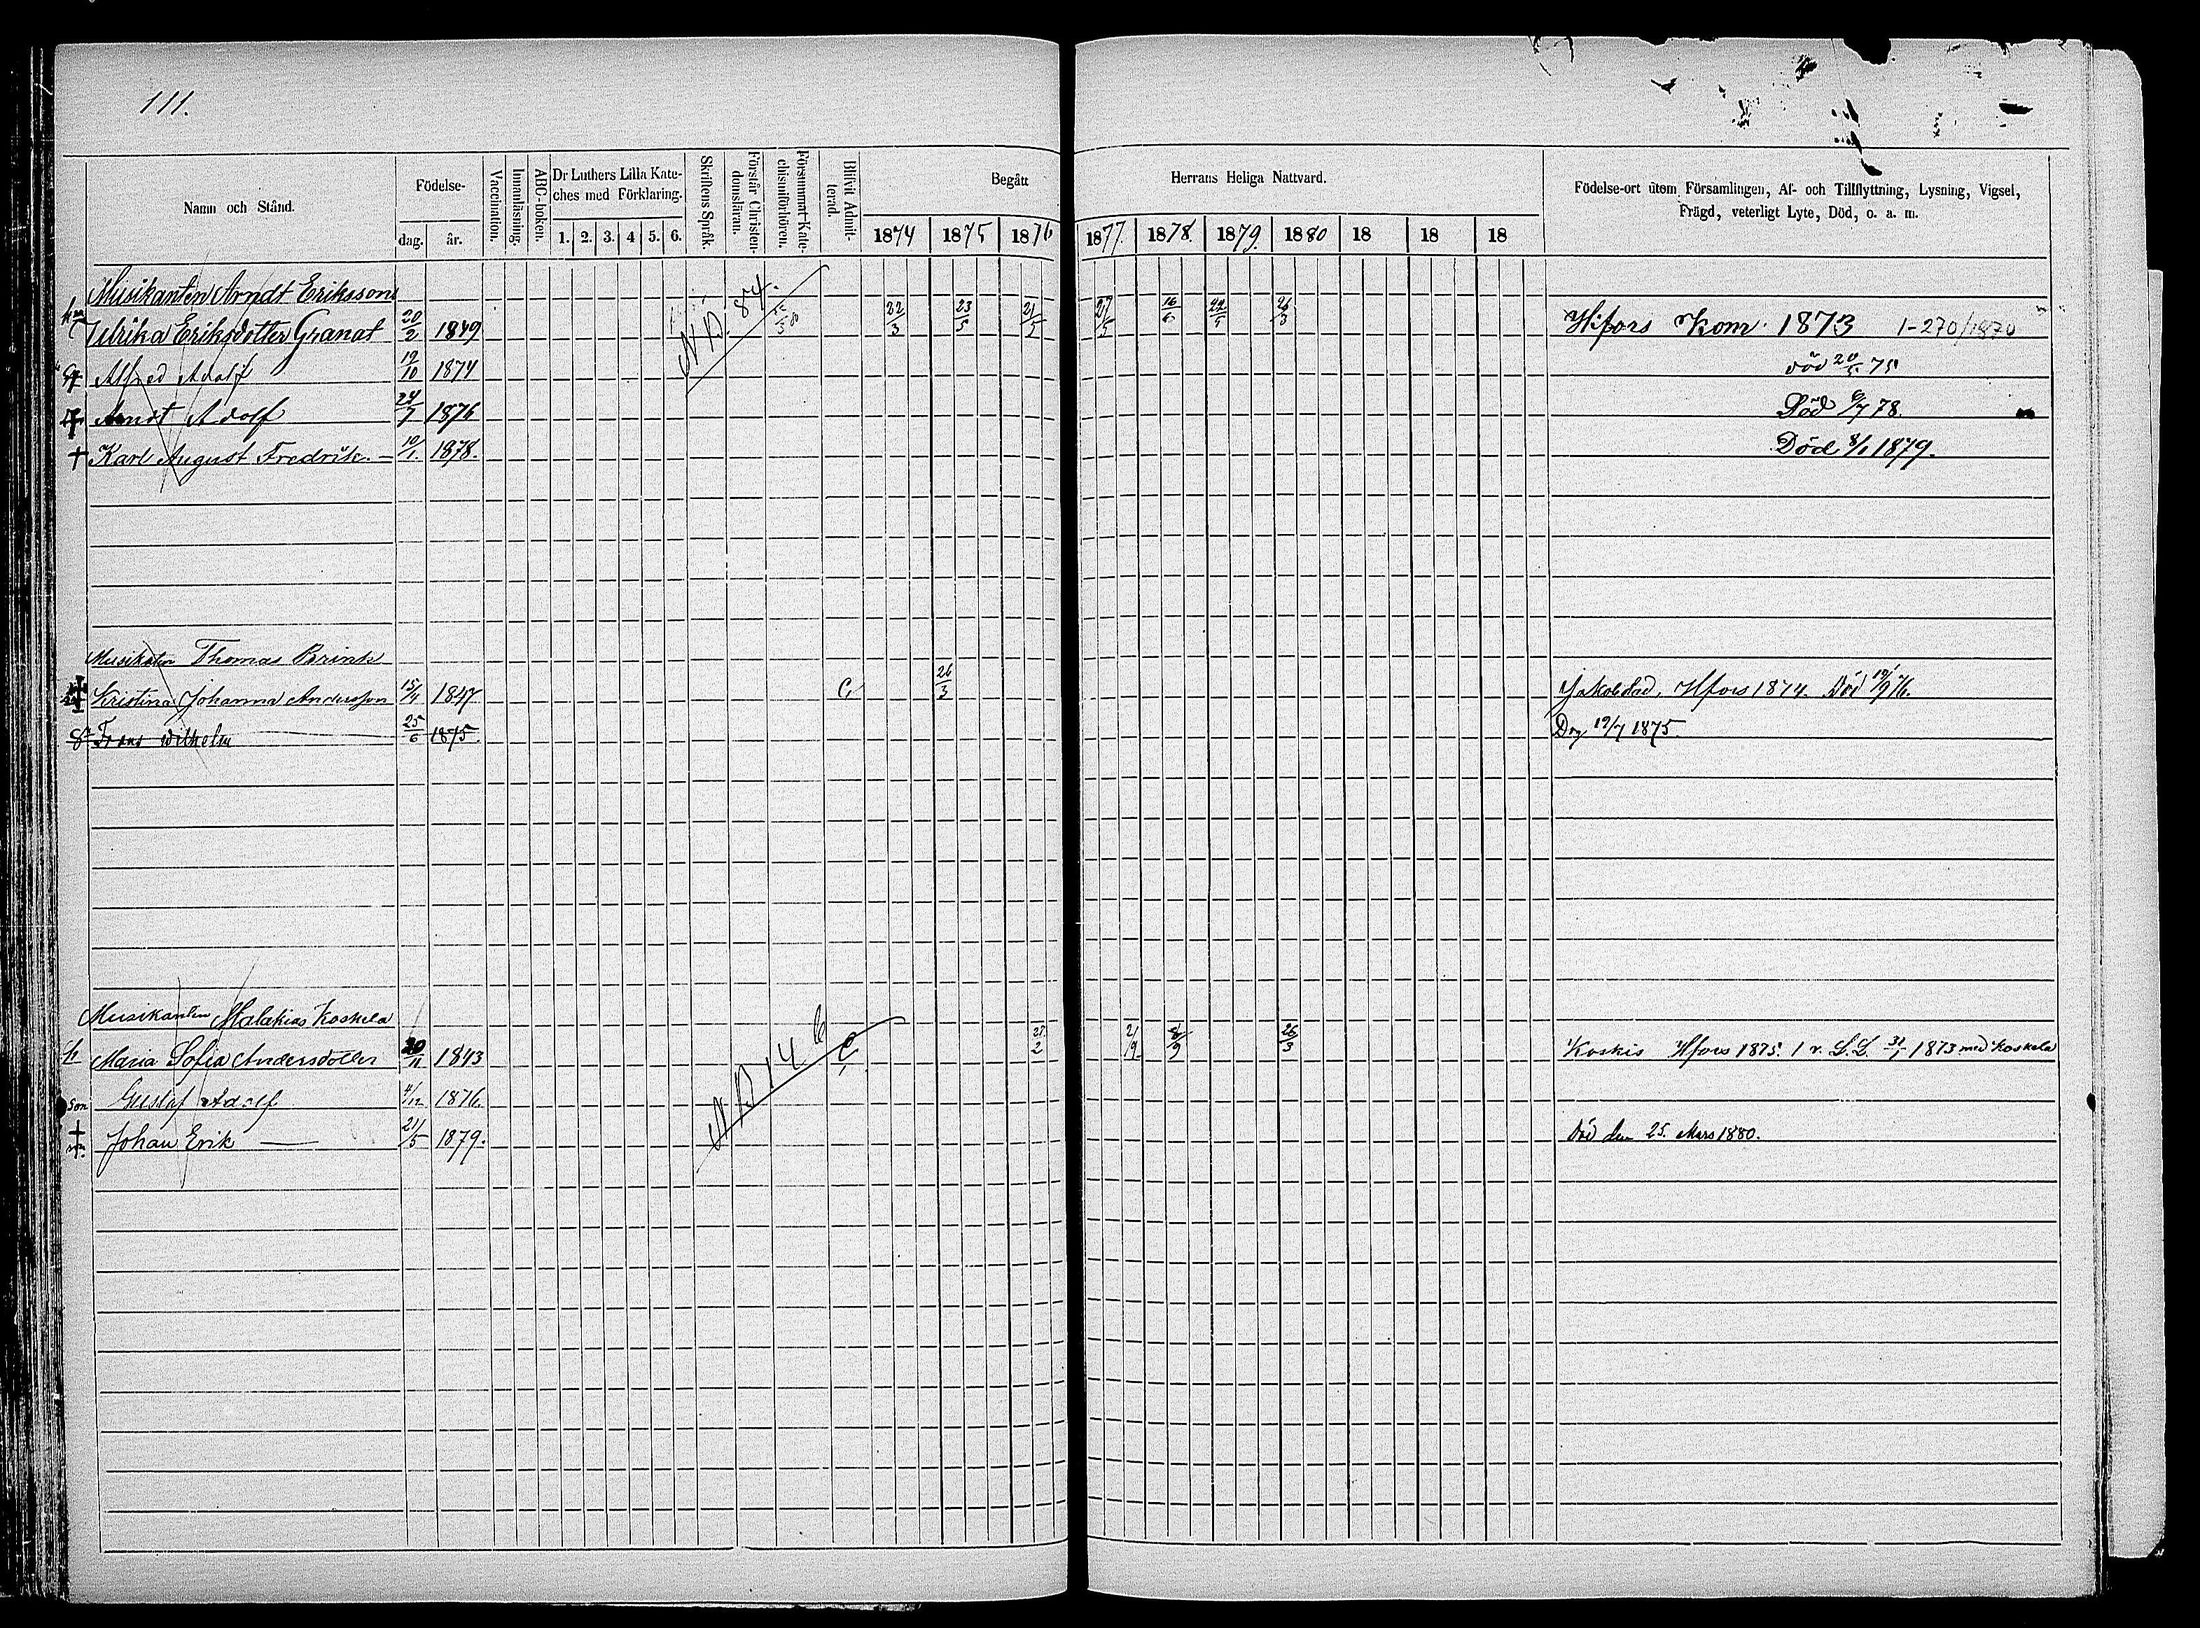 111.
Namn och Stånd.
Födelse-
dag. år.
Vaccination.
Innanläsning.
ABC-boken.
Dr Luthers Lilla Kate-
ches med Förklaring.
1. 2. 3. 4 5. 6.
Skriftens Språk.
Förstår Christen-
domsläran.
Försummat Kate-
chismiförhören.
Blifvit Admit-
terad.
Begått Herrans Heliga Nattvard.
1874 1875 1876 1877. 1878. 1879. 1880 18 18 18
Födelse-ort utom Församlingen, Af- och Tillflyttning, Lysning, Vigsel,
Frägd, veterligt Lyte, Död, o. a. m.
Musikanten Arndt Erikssons
Ulrika Eriksdotter Granat 20/2 1849 N.B. 84. 22/3 23/5 21/5 27/5 16/6 26/3 Hfors Kom. 1873 1-270/1870
Alfred Adolf 19/10 1874 död 20/5 75
Arndt Adolf 24/7 1876 Död 6/7 78.
Karl August Fredrik. 10/1 1878. Död 8/1 1879.
Musikanten Thomas Brinks
Kristina Johanna Andersson 15/4 1847 C, 26/3 Jakobstad, Hfors 1874. Död 19/9 76.
Frans Wilhelm 25/6 1875. 19/7 1875.
Musikanten Malakias Koskela
h Maria Sofia Andersdotter 20/11 1843 N.B. 146 C, 21/9 8/9 26/3 Koskis Hfors 1875. 1 v. L.L. 31/1 1873 med Koskela
son Gustaf Adolf 4/12 1876.
Johan Erik 21/5 1879. Död den 25. Mars 1880.